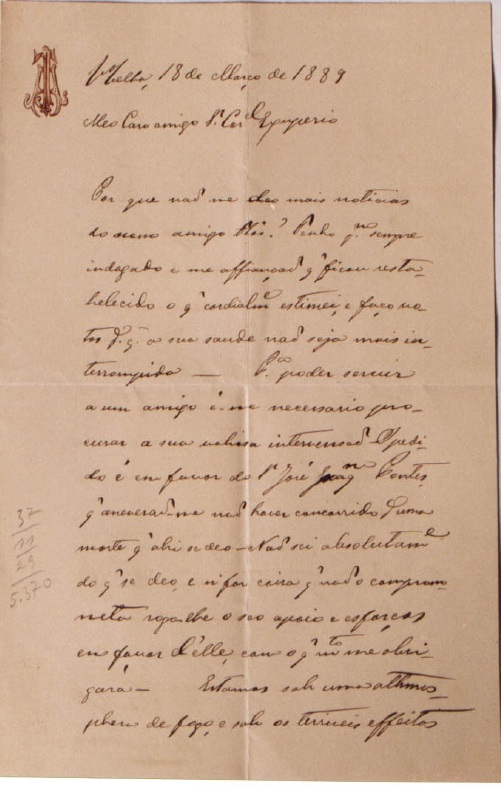 Velha, 18 de Março de 1889
Meo Caro amigo Sr. Cor.el Exuperio
Por que naõ me deo mais noticias
do nosso amigo ? Tenho sempre
indagado e me affiançaõ q' ficou resta-
belecido o q' cordialm.e estimei, e faço vo-
tos p.a q' a sua saude naõ seja mais in-
terrompida — P.a poder servir
a um amigo é-me necessario pro-
curar a sua valiosa intervensaõ. O pedi-
do é em favor do Sr. José Joaq.m Pontes,
q' naõ haver concorrido p.a uma
morte q' ahi se deo — Naõ sei absolutam.e
do q' se deo, e si for coiza q' naõ o comprom-
metta rogo-lhe o seo apoio e esforços
em favor d'elle, com o q' m.to me obri-
gará — Estamos sob uma athmos-
phera de fogo, e sob os terriveis effeitos
37
11
29
5.370